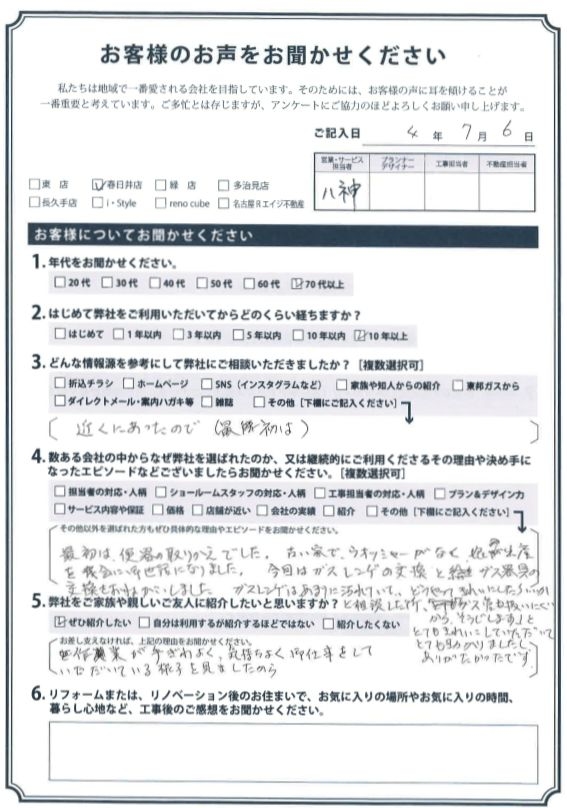 お客様のお声をお聞かせください
私たちは地域で一番愛される会社を目指しています。そのためには、お客様の声に耳を傾けることが
一番重要と考えています。ご多忙とは存じますが、アンケートにご協力のほどよろしくお願い申し上げます。
ご記入日 4 年 7 月 6 日
営業・サービス担当者 プランナーデザイナー 工事担当者 不動産担当者
八神
東 店 春日井店 緑 店 多治見店
長久手店 i・Style reno cube 名古屋Rエイジ不動産
お客様についてお聞かせください
1. 年代をお聞かせください。
20代 30代 40代 50代 60代 70代以上
2. はじめて弊社をご利用いただいてからどのくらい経ちますか?
はじめて 1年以内 3年以内 5年以内 10年以内 10年以上
3. どんな情報源を参考にして弊社にご相談いただきましたか?[複数選択可]
折込チラシ ホームページ SNS(インスタグラムなど) 家族や知人からの紹介 東邦ガスから
ダイレクトメール・案内ハガキ等 雑誌 その他[下欄にご記入ください]
近くにあったので(最初は)
4. 数ある会社の中からなぜ弊社を選ばれたのか、又は継続的にご利用くださるその理由や決め手に
なったエピソードなどございましたらお聞かせください。[複数選択可]
担当者の対応・人柄 ショールームスタッフの対応・人柄 工事担当者の対応・人柄 プラン&デザイン力
サービス内容や保証 価格 店舗が近い 会社の実績 紹介 その他[下欄にご記入ください]
その他以外を選ばれた方もぜひ具体的な理由やエピソードをお聞かせください。
最初は、便器の取りかえでした。古い家で、ウオッシャーがなく 出産
を機会に 世話になりました。今回はガスレンヂの交換と ガス器具の
交換もおねがいしました。ガスレンヂはあまりに汚れていて、どうやってきれいにしたらいいか
と相談した所、 ガス管も扱いにくい
から、そうじします」と
とてもきれいにしていただいて
とても助かりましたし
ありがたかったです。
5. 弊社をご家族や親しいご友人に紹介したいと思いますか?
ぜひ紹介したい 自分は利用するが紹介するほどではない 紹介したくない
お差し支えなければ、上記の理由をお聞かせください。
作業が手ぎわよく、気持ちよく御仕事をして
いただいている様子を見ましたから
6. リフォームまたは、リノベーション後のお住まいで、お気に入りの場所やお気に入りの時間、
暮らし心地など、工事後のご感想をお聞かせください。